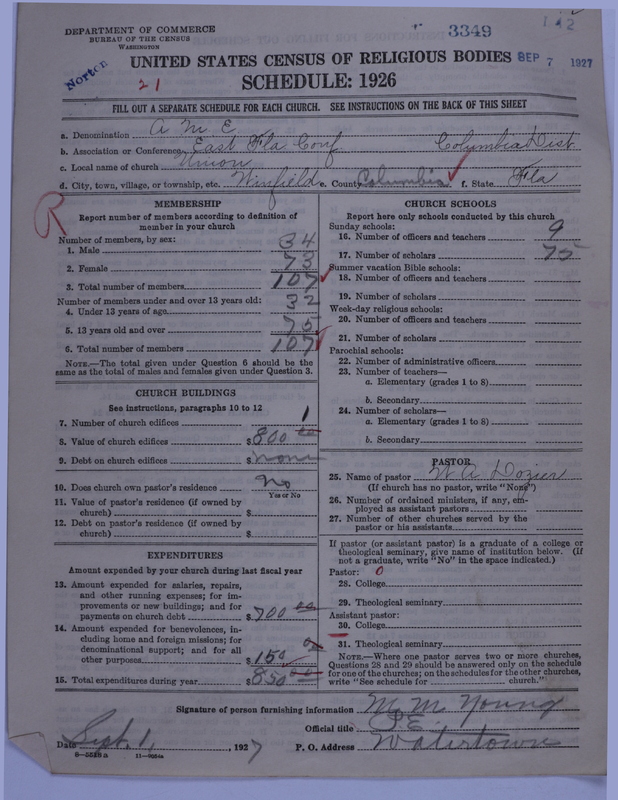 DEPARTMENT OF COMMERCE
BUREAU OF THE CENSUS
WASHINGTON
3349
Norton
UNITED STATES CENSUS OF RELIGIOUS BODIES
SEP 7 1927
21
SCHEDULE: 1926
FILL OUT A SEPARATE SCHEDULE FOR EACH CHURCH. SEE INSTRUCTIONS ON THE BACK OF THIS SHEET
a. Denomination A M E
b. Association or Conference East Fla Conf Columbia Dist
c. Local name of church Union
d. City, town, village, or township, etc. Winfield e. County Columbia f. State Fla
R
MEMBERSHIP
Report number of members according to definition of
member in your church
Number of members, by sex:
1. Male 34
2. Female 73
3. Total number of members 107
Number of members under and over 13 years old:
4. Under 13 years of age 32
5. 13 years old and over 75
6. Total number of members 107
NOTE.—The total given under Question 6 should be
same as the total of males and females given under Question 3.
CHURCH BUILDINGS
See instructions, paragraphs 10 to 12
7. Number of church edifices 1
8. Value of church edifices $ 800 00
9. Debt on church edifices $ none
10. Does church own pastor's residence No
Yes or No
11. Value of pastor's residence (if owned by
church) $
12. Debt on pastor's residence (if owned by
church) $
EXPENDITURES
Amount expended by your church during last fiscal year
13. Amount expended for salaries, repairs,
and other running expenses; for im-
provements or new buildings; and for
payments on church debt $ 700 00
14. Amount expended for benevolences, in-
cluding home and foreign missions; for
denominational support; and for all
other purposes $ 150
15. Total expenditures during year $ 850 00
CHURCH SCHOOLS
Report here only schools conducted by this church
Sunday schools:
16. Number of officers and teachers 9
17. Number of scholars 75
Summer vacation Bible schools:
18. Number of officers and teachers
19. Number of scholars
Week-day religious schools:
20. Number of officers and teachers
21. Number of scholars
Parochial schools:
22. Number of administrative officers
23. Number of teachers—
a. Elementary (grades 1 to 8)
b. Secondary
24. Number of scholars—
a. Elementary (grades 1 to 8)
b. Secondary
PASTOR
25. Name of pastor W A Dozier
(If church has no pastor, write "None")
26. Number of ordained ministers, if any, em-
ployed as assistant pastors
27. Number of other churches served by the
pastor or his assistants
If pastor (or assistant pastor) is a graduate of a college or
theological seminary, give name of institution below. (If
not a graduate, write "No" in the space indicated.)
Pastor: 0
28. College
29. Theological seminary
Assistant pastor:
30. College
31. Theological seminary
NOTE.—Where one pastor serves two or more churches,
Questions 28 and 29 should be answered only on the schedule
for one of the churches; on the schedules for the other churches,
write "See schedule for church."
Signature of person furnishing information M. M. Young
Official title P E
Date Sept. 1, 1927 P. O. Address Watertown
8-5528a 11-9054a